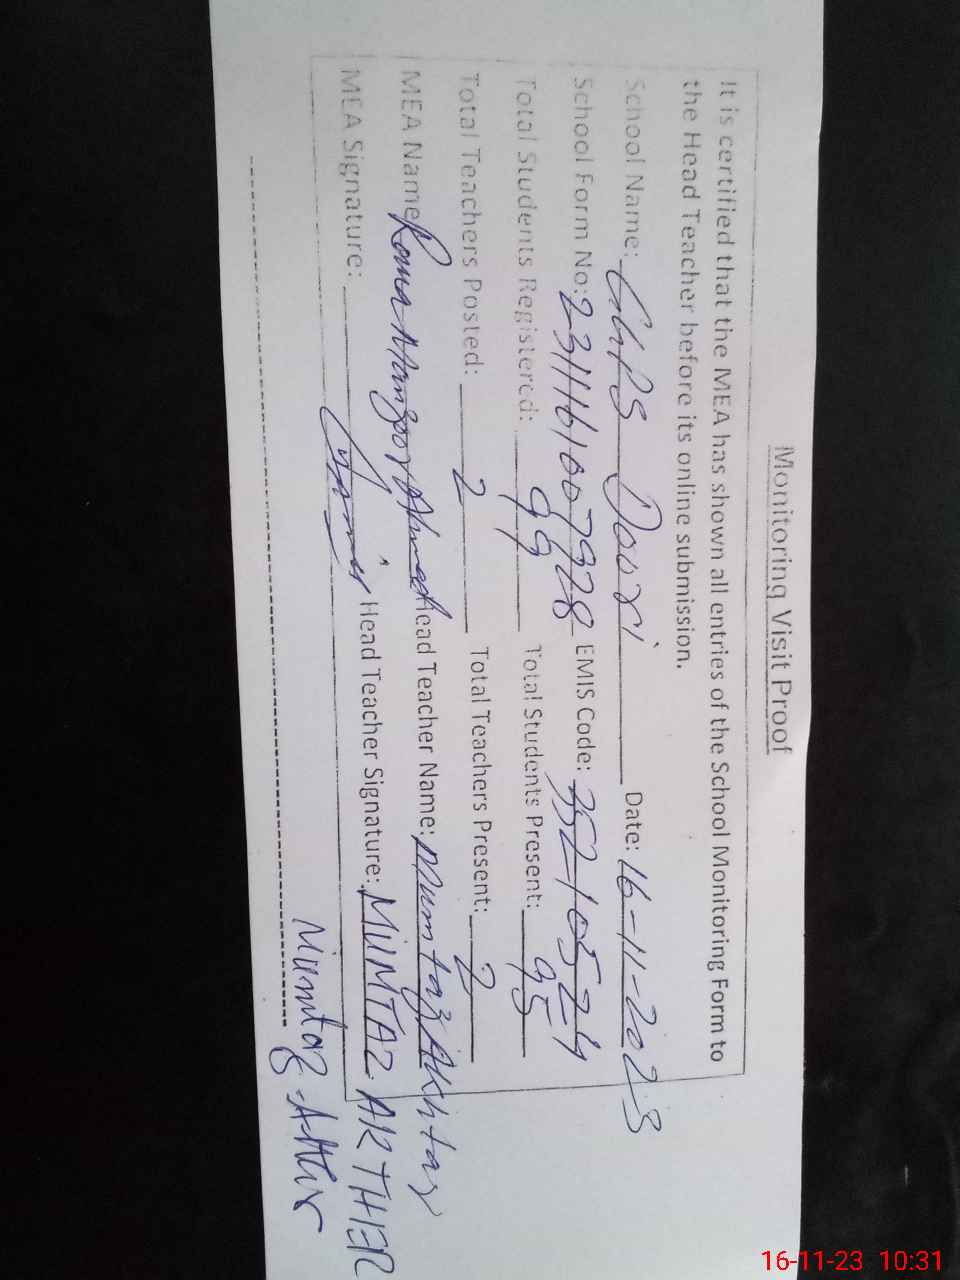 Monitoring Visit Proof
It is certified that the MEA has shown all entries of the School Monitoring Form to
the Head Teacher before its online submission.
School Name: GGPS Doori Date: 16-11-2023
School Form No: 23111616007928 EMIS Code: 35210524
Total Students Registered: 99 Total Students Present: 95
Total Teachers Posted: 2 Total Teachers Present: 2
MEA Name Rana Manzoor Ahmad Head Teacher Name: Mumtaz Akhtar
MEA Signature: Head Teacher Signature: MUMTAZ ARTHER
Mumtaz
16-11-23 10:31